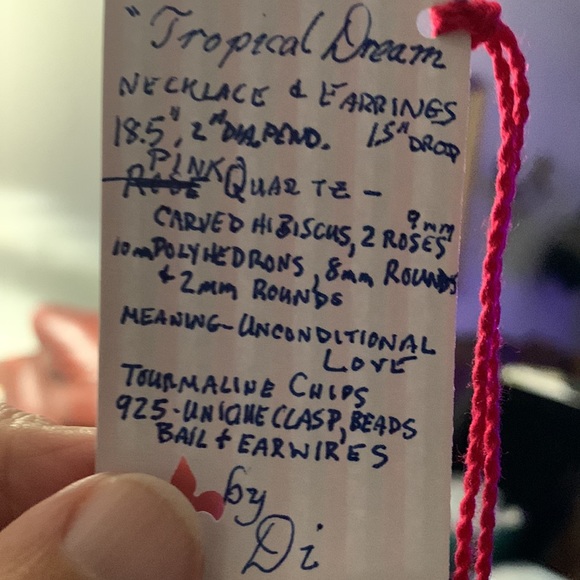 "Tropical Dream
NECKLACE & EARRINGS
18.5", 2" DIA. PEND. 1.5" DROP
PINK
ROSE QUARTZ -
CARVED HIBISCUS, 2 9mm ROSES
10mm POLYHEDRONS, 8mm ROUNDS
& 2mm ROUNDS
MEANING - UNCONDITIONAL
LOVE
TOURMALINE CHIPS
925 - UNIQUE CLASP, BEADS
BAIL & EARWIRES
by
Di